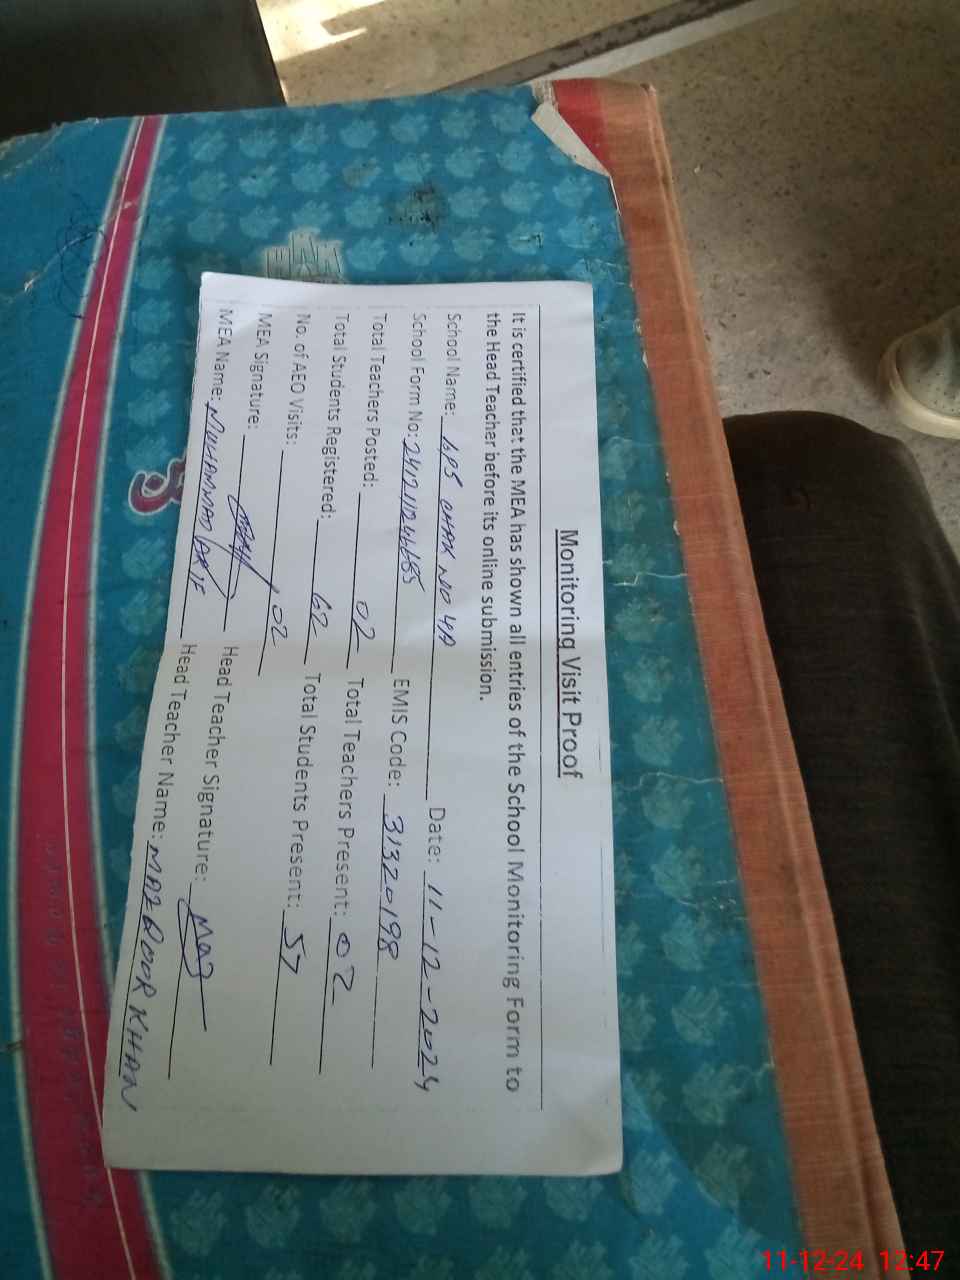 Monitoring Visit Proof
It is certified that the MEA has shown all entries of the School Monitoring Form to
the Head Teacher before its online submission.
School Name: GPS CHAK NO 4A Date: 11-12-2024
School Form No: EMIS Code: 31320198
Total Teachers Posted: 02 Total Teachers Present: 02
Total Students Registered: 62 Total Students Present: 57
No. of AEO Visits: 02
MEA Signature: Head Teacher Signature: Maz
MEA Name: MUHAMMAD ARIF Head Teacher Name: MAZOOR KHAN
11-12-24 12:47